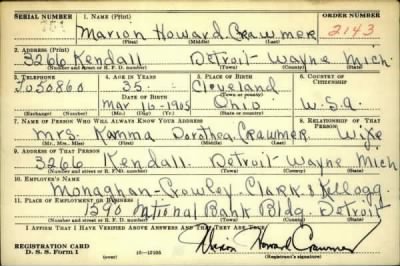 SERIAL NUMBER 1. NAME (Print) ORDER NUMBER
Marion Howard Crawmer 2143
(First) (Middle) (Last)
2. ADDRESS (Print)
3266 Kendall Detroit Wayne Mich.
(Number and street or R. F. D. number) (Town) (County) (State)
3. TELEPHONE 4. AGE IN YEARS 5. PLACE OF BIRTH 6. COUNTRY OF CITIZENSHIP
To50860 35 Cleveland
DATE OF BIRTH (Town or county)
Mar 16-1905 Ohio U.S.a.
(Exchange) (Number) (Mo.) (Day) (Yr.) (State or country)
7. NAME OF PERSON WHO WILL ALWAYS KNOW YOUR ADDRESS 8. RELATIONSHIP OF THAT PERSON
Mrs. Kamma Dorothea Crawmer Wife
(Mr., Mrs., Miss) (First) (Middle) (Last)
9. ADDRESS OF THAT PERSON
3266 Kendall Detroit Wayne Mich
(Number and street or R. F. D. number) (Town) (County) (State)
10. EMPLOYER'S NAME
Monaghan-Crowley, Clark & Kellogg
11. PLACE OF EMPLOYMENT OR BUSINESS
1270 National Bank Bldg. Detroit
(Number and street or R. F. D. number) (Town) (County) (State)
I AFFIRM THAT I HAVE VERIFIED ABOVE ANSWERS AND THAT THEY ARE TRUE.
REGISTRATION CARD
D. S. S. Form 1 Marion Howard Crawmer
(Registrant's signature)